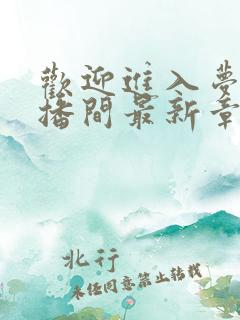 歡迎進入夢
播間最新章
北行
未经同意禁止转载